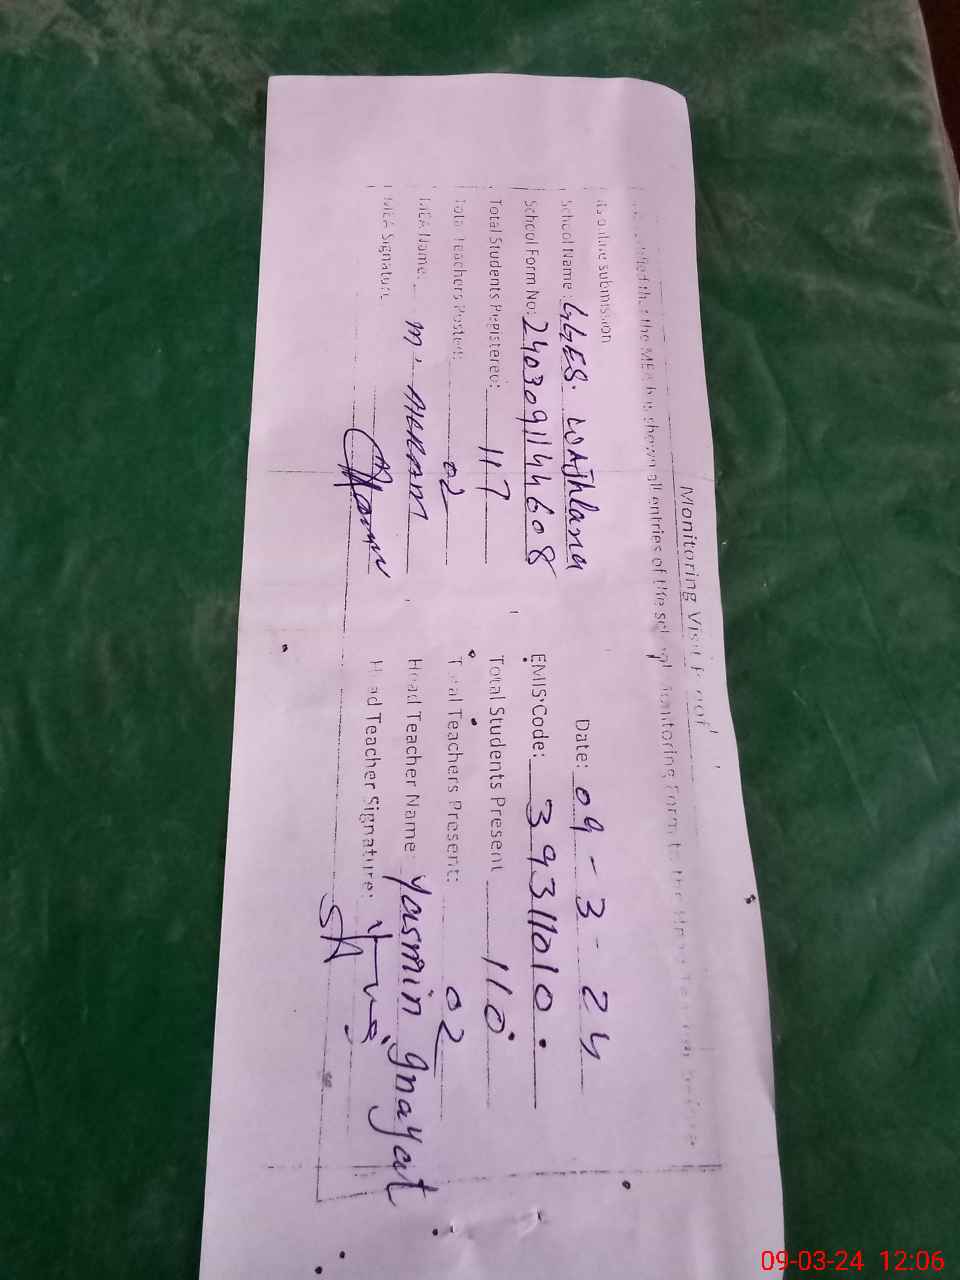 Monitoring Visit Proof
the MEA has shown all entries of the school Monitoring Form to the Head Teacher before
its online submission
Date: 09-3-24
School Name: GGES. WAJhlana
School Form No: 2403091144608
EMIS Code: 39311010
Total Students Registered: 117
Total Students Present 110
Total Teachers Posted: 02
Total Teachers Present: 02
MEA Name: M. AKRAM
Head Teacher Name: Yasmin Gnayat
MEA Signature
Head Teacher Signature:
09-03-24 12:06